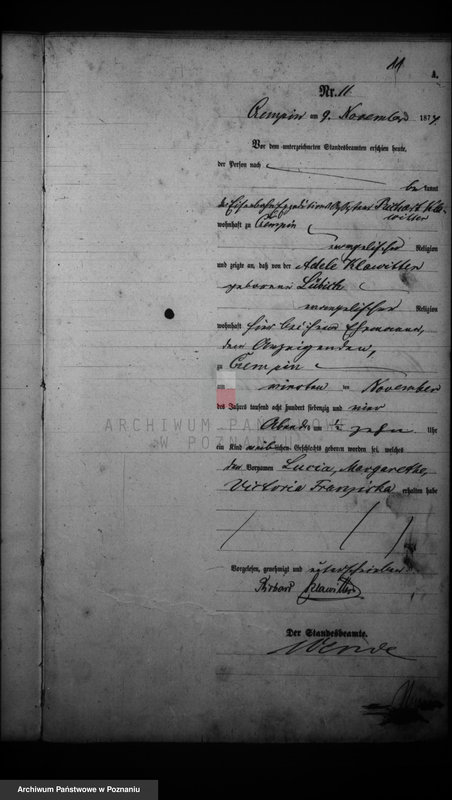 11
A.
Nr. 11.
Czempin am 9. November 1874.
Vor dem unterzeichneten Standesbeamten erschien heute,
der Person nach
be kannt
der Eisenbahn Expeditions Assistent Richard Kla-
witter
wohnhaft zu Czempin
evangelischer Religion
und zeigte an, daß von der Adele Klawitter
geborene
evangelischer Religion
wohnhaft hier bei ihrem Ehemann,
dem Anzeigenden,
zu Czempin
am vierten ten November
des Jahres tausend acht hundert siebenzig und vier
Abends um ½ zehn Uhr
ein Kind weiblichen Geschlechts geboren worden sei, welches
den Vornamen Lucia, Margarethe,
Victoria Franziska erhalten habe
Vorgelesen, genehmigt und unterschrieben
Richard Klawitter
Der Standesbeamte.
Wende
ARCHIWUM PAŃSTWOWE
W POZNANIU
Archiwum Państwowe w Poznaniu